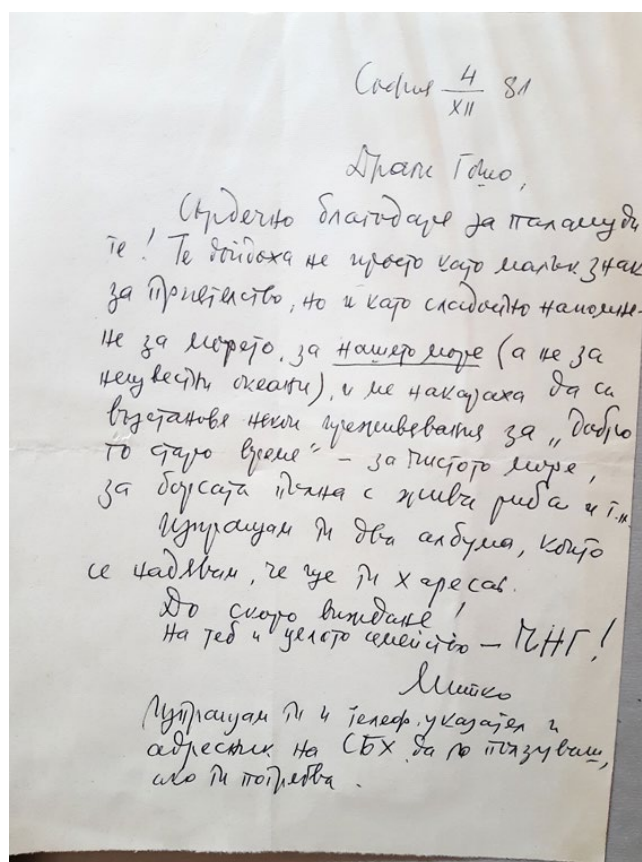 София 4/XII 81
Драги Гошо,
Сърдечно благодаря за паламуди
те! Те дойдоха не просто като малък знак
за приятелство, но и като сладостно напомня-
не за морето, за нашето море (а не за
неизвестни океани), и ме накараха да си
възстановя некои преживявания за „добро
то старо време" – за чистото море,
за борсата пълна с живи риба и т.н.
Изпращам ти два албума, които
се надявам, че ще ти харесат.
До скоро виждане!
На теб и цялото семейство – ЧНГ!
Митко
Изпращам ти и телеф. указател и
адресник на СБХ да го ползуваш,
ако ти потрябва.